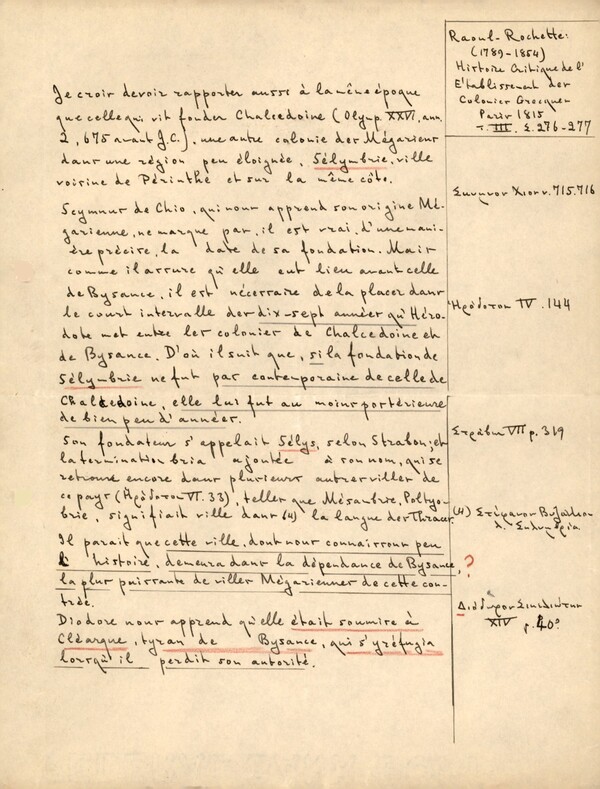 Raoul-Rochette:
(1789-1854)
Histoire Critique de l'
Etablissement des
Colonies Grecques
Paris 1815
T. III. Σ. 276-277
Je crois devoir rapporter aussi à la même époque
que celle qui vit fonder Chalcedoine (Olymp. XXVI, ann.
2, 675 avant J.C.), une autre colonie des Mégariens
dans une région peu éloignée, Sélymbrie, ville
voisine de Périnthe et sur la même côte.
Scymnus de Chio, qui nous apprend son origine Mé-
garienne, ne marque pas, il est vrai, d'une mani-
ère précise, la date de sa fondation. Mais
comme il assure qu'elle eut lieu avant celle
de Bysance, il est nécessaire de la placer dans
le court intervalle des dix-sept années qu'Héro-
dote met entre les colonies de Chalcedoine et
de Bysance. D'où il suit que, si la fondation de
Sélymbrie ne fut pas contemporaine de celle de
Chalcedoine, elle lui fut au moins postérieure
de bien peu d'années.
Son fondateur s'appelait Sélys, selon Strabon; et
la termination bria ajoutée à son nom, qui se
retrouve encore dans plusieurs autres villes de
ce pays (Ηρόδοτον VI. 33), telles que Mésambrie, Poltyo-
brie, signifiait ville dans (4) la langue des Thraces.
Il parait que cette ville, dont nous connaissons peu
l' histoire, demeura dans la dépendance de Bysance, ?
la plus puissante de villes Mégariennes de cette con-
trée.
Diodore nous apprend qu'elle était soumise à
Cléarque, tyran de Bysance, qui s'y réfugia
lorsqu'il perdit son autorité.
Σκυμνον Χιον ν. 715.716
Ηρόδοτον IV. 144
Στράβων VII p. 319
(4) Στέφανον Βυζάντιον
λ. Σηλυμβρία
Διόδωρον Σικελιώτην
XIV